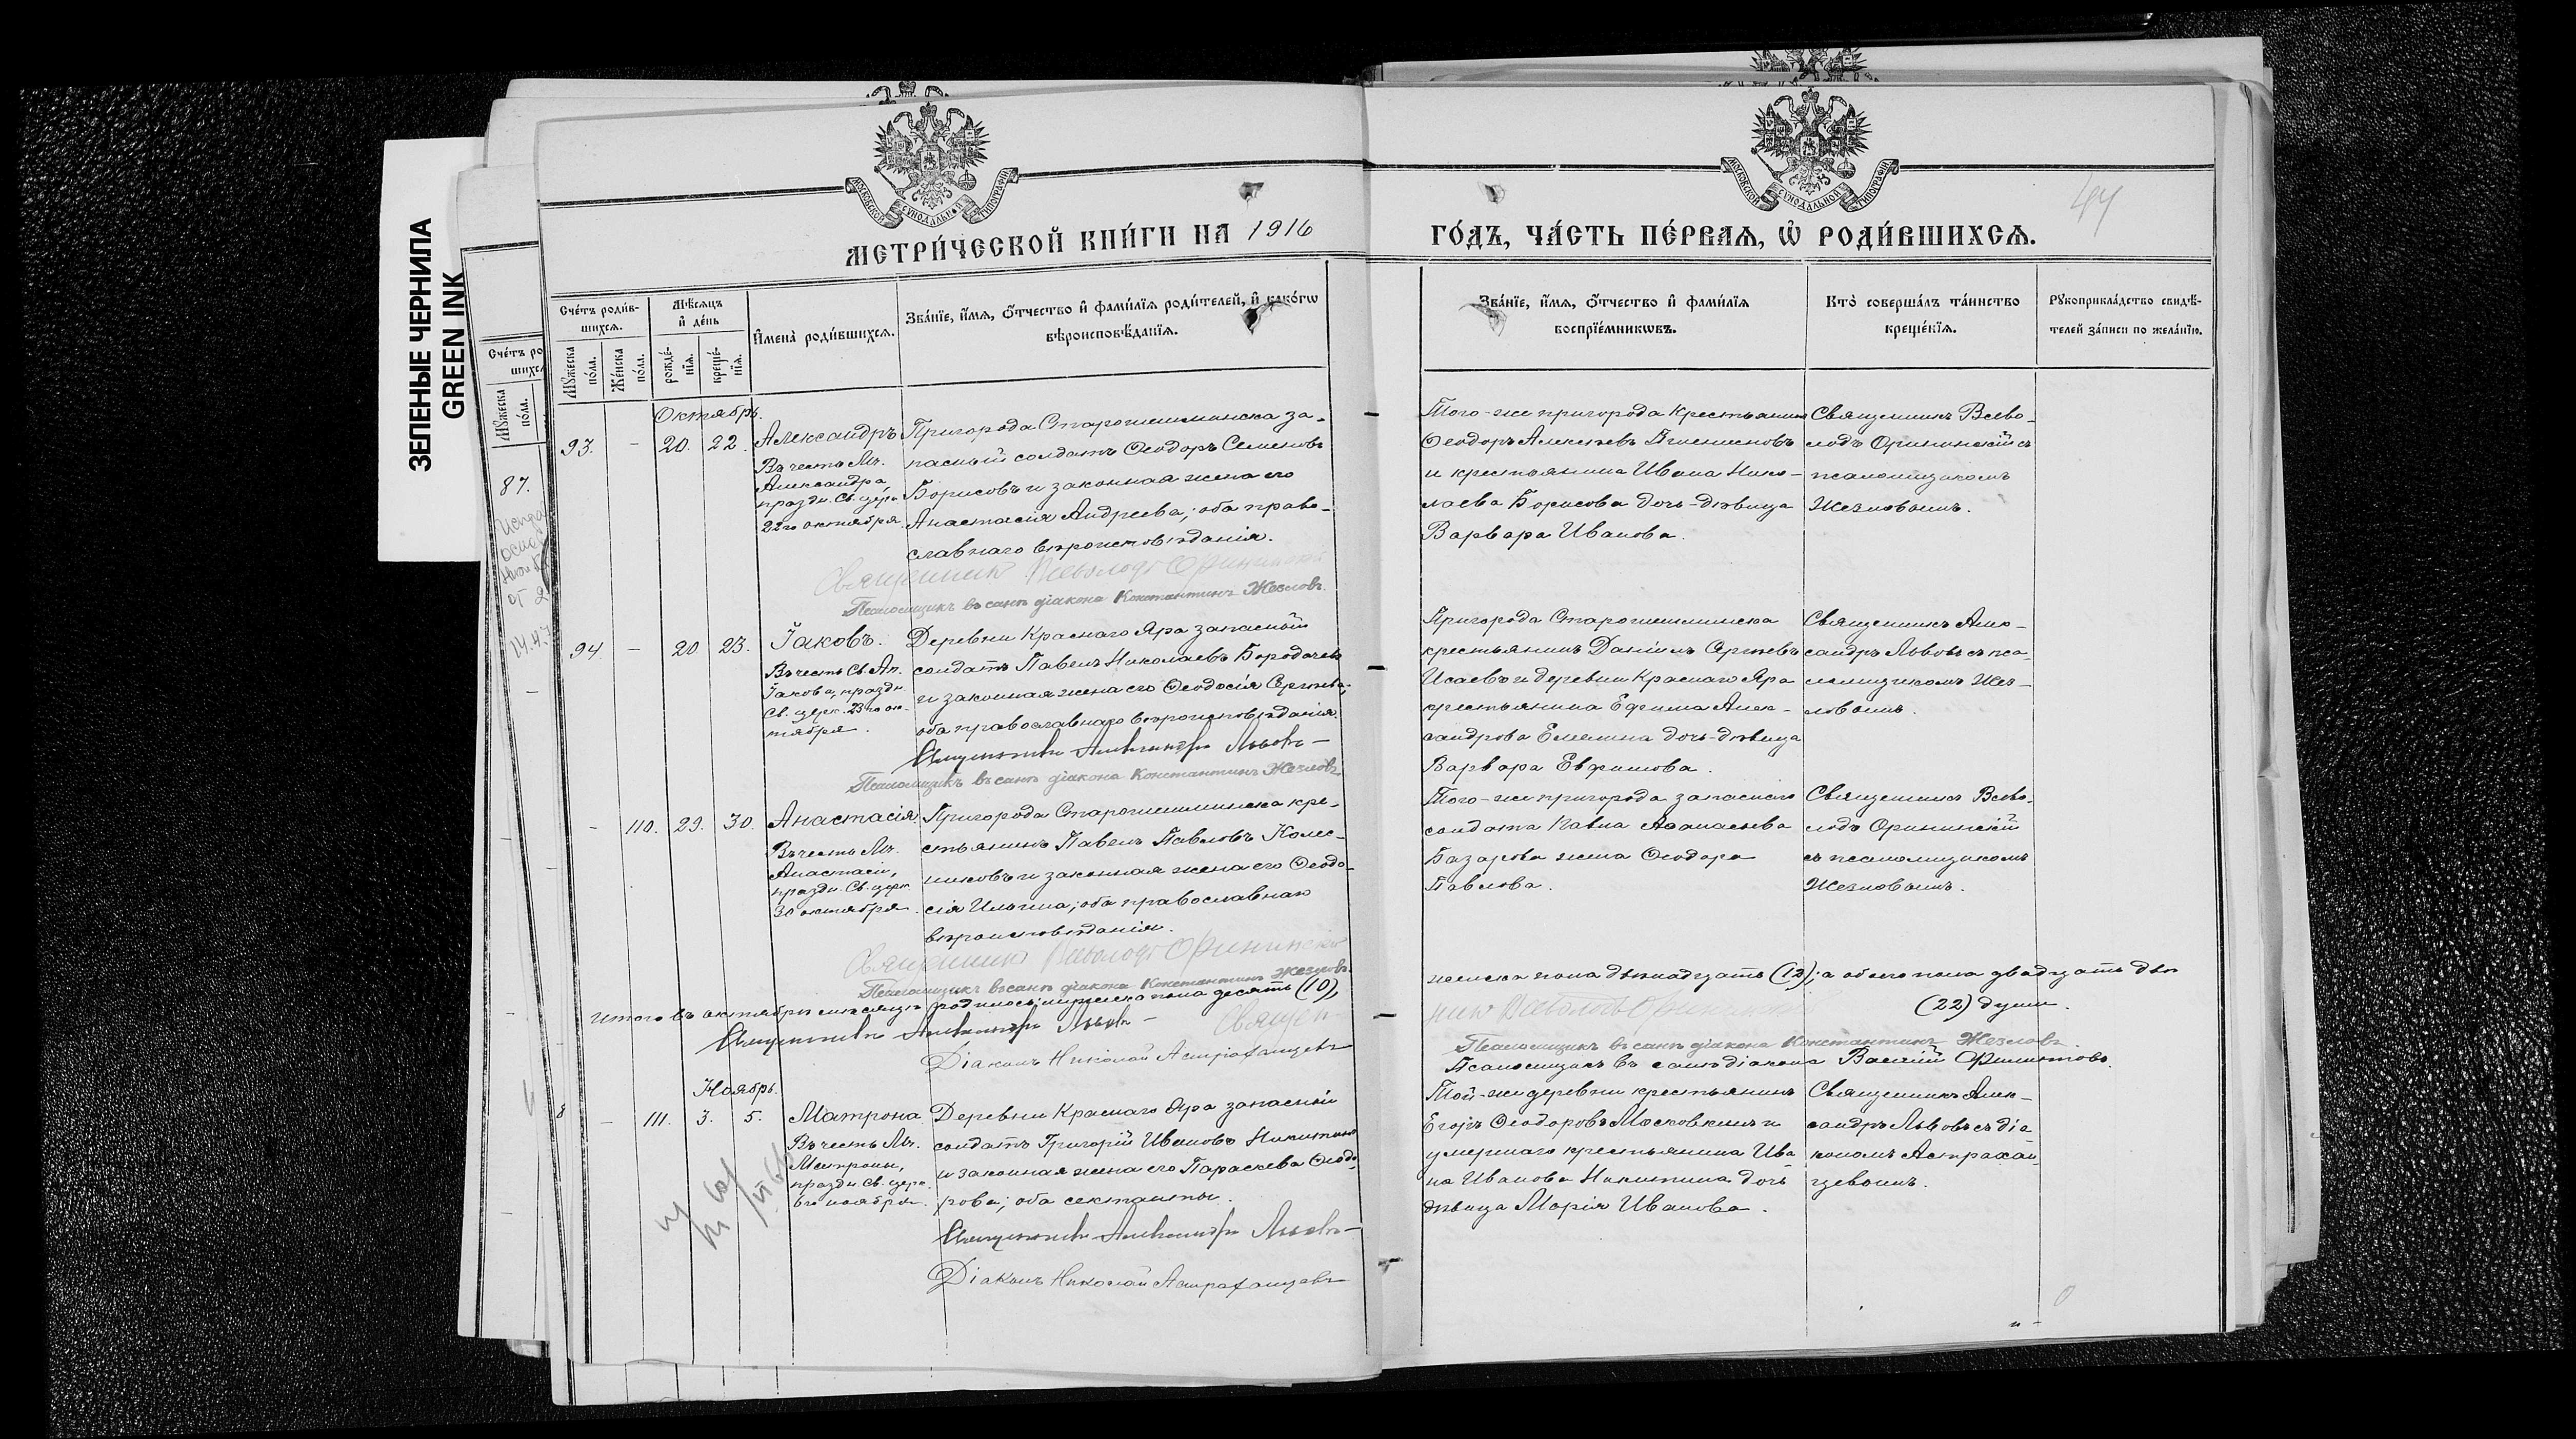 ЗЕЛЕНЫЕ ЧЕРНИЛА
GREEN INK
87.
МЕТРИ́ЧЕСКОЙ КНИ́ГИ НА 1916
ГО́ДЪ, ЧА́СТЬ ПЕ́РВАѦ, Ѡ РОДИ́ВШИХСѦ.
44
Сче́тъ роди́в-
шихсѧ.
Мѣ́сѧцъ
и҆ де́нь
И҆мена̀ роди́вшихсѧ.
Зва́нїе, и҆́мѧ, ѻ҆́тчество и҆ фами́лїѧ роди́телей, и҆ како́гѡ
вѣроисповѣ́данїѧ.
Мꙋ́жеска
по́ла.
Же́нска
по́ла.
рожде́-
нїѧ.
креще́-
нїѧ.
Зва́нїе, и҆́мѧ, ѻ҆́тчество и҆ фами́лїѧ
воспрїе́мникѡвъ.
Кто̀ соверша́лъ та́инство
креще́нїѧ.
Рꙋкоприкла́дство свидѣ́-
телей за́писи по жела́нїю.
Октябрь.
93. - 20. 22. Александръ
Въ честь Мч.
Александра,
праздн. Св. церк.
22го октября.
Пригорода Старошешминска за-
пасный солдатъ Ѳеодоръ Семеновъ
Борисовъ и законная жена его
Анастасія Андреева; оба право-
славнаго вѣроисповѣданія.
Священникъ Всеволодъ Орининскій
Псаломщикъ въ санѣ діакона Константинъ Жезловъ.
Того-же пригорода крестьянинъ
Ѳеодоръ Алексѣевъ
и крестьянина Ивана Нико-
лаева Борисова дочь-дѣвица
Варвара Иванова.
Священникъ Всево-
лодъ Орининскій съ
псаломщикомъ
Жезловымъ.
94 - 20 23. Іаковъ.
Въ честь Св. Ап.
Іакова, праздн.
Св. церк. 23го ок-
тября.
Деревни Краснаго Яра запасный
солдатъ Павелъ Николаевъ Бородачевъ
и законная жена его Ѳеодосія Сергѣева;
оба православнаго вѣроисповѣданія.
Священникъ Александръ Львовъ
Псаломщикъ въ санѣ діакона Константинъ Жезловъ
Пригорода Старошешминска
крестьянинъ Даніилъ Сергѣевъ
Исаевъ и деревни Краснаго Яра
крестьянина Ефима Алек-
сандрова Емелина дочь-дѣвица
Варвара Евфимова.
Священникъ Алек-
сандръ Львовъ съ пса-
ломщикомъ Жез-
ловымъ.
- 110. 29. 30. Анастасія
Въ честь Мч.
Анастасіи,
праздн. Св. церк.
30 октября.
Пригорода Старошешминска кре-
стьянинъ Павелъ Павловъ Колес-
никовъ и законная жена его Ѳеодо-
сія Ильина; оба православнаго
вѣроисповѣданія.
Священникъ Всеволодъ Орининскій
Псаломщикъ въ санѣ діакона Константинъ Жезловъ.
Того-же пригорода запаснаго
солдата Павла Аѳанасьева
Базарова жена Ѳеодора
Павлова.
Священникъ Всево-
лодъ Орининскій
съ псаломщикомъ
Жезловымъ.
Итого въ октябрѣ мѣсяцѣ родилось: мужеска пола десять (10),
женска пола двѣнадцать (12); а обоего пола двадцать двѣ
(22) души.
Священникъ Александръ Львовъ
Священ-
никъ Всеволодъ Орининскій
Діаконъ Николай Астраханцевъ
Псаломщикъ въ санѣ діакона Константинъ Жезловъ.
Псаломщикъ въ санѣ діакона Василій Филиптовъ.
Ноябрь.
- 111. 3. 5. Матрона
Въ честь Мч.
Матроны,
праздн. Св. церк.
6го ноября.
Деревни Краснаго Яра запасный
солдатъ Григорій Ивановъ Никитинъ
и законная жена его Параскева Ѳеодо-
рова; оба сектанты.
Священникъ Александръ Львовъ
Діаконъ Николай Астраханцевъ
Той-же деревни крестьянинъ
Егоръ Ѳеодоровъ Московкинъ и
умершаго крестьянина Ива-
на Иванова Никитина дочь
дѣвица Марія Иванова.
Священникъ Алек-
сандръ Львовъ съ діа-
кономъ Астрахан-
цевымъ.